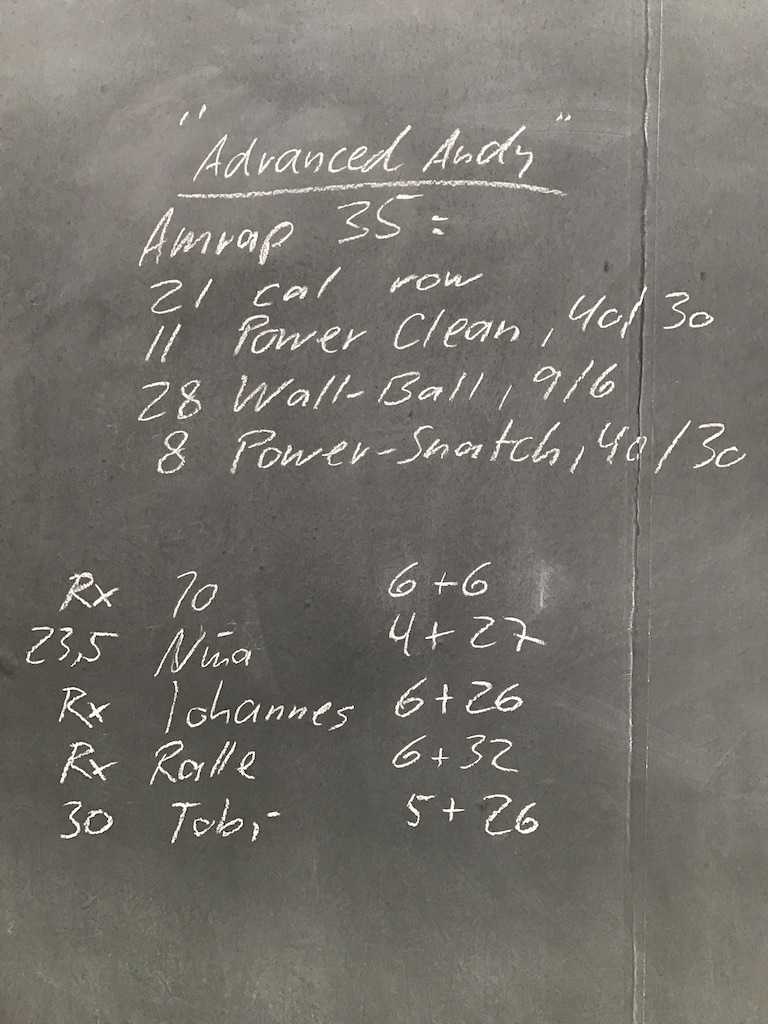 "Advanced Andy"
Amrap 35:
21 cal row
11 Power Clean, 40/30
28 Wall-Ball, 9/6
8 Power-Snatch, 40/30
Rx Jo 6+6
23,5 Nina 4+27
Rx Johannes 6+26
Rx Ralle 6+32
30 Tobi 5+26